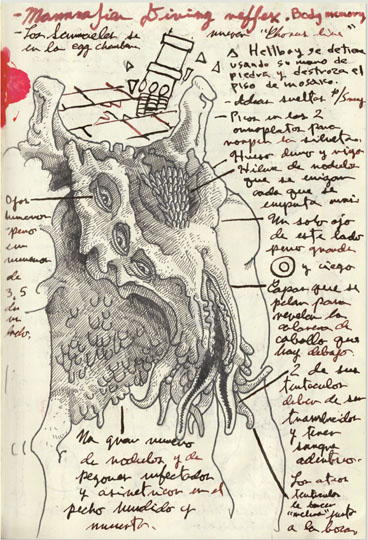 Mammalian Diving reflex. Body memory
- Los Sammaeles se
en la egg chamber
nuevos "Chorus line"
Δ Hellboy se detiene
usando su mano de
piedra y destroza el
piso de mosaico.
- Ideas sueltas
- Picos en los 2
omoplatos para
romper la silueta.
Hueso duro y
Hilera de nodulos
que se erizan
cada que se
emputa mas
Ojos
humanos
pero
en
numeros
de
3, 5
de un
lado.
Un solo ojo
de este lado
pero grande
y ciego
Capas que se
pelan para
revelar la
calavera de
caballo que
hay debajo.
2 de sus
tentaculos
deben de ser
translucidos
y tener
sangre
adentro.
Los otros
tentaculos
le hacen
"melena" junto
a la boca.
Un gran numero
de nodulos y de
pezones infectados
y asimetricos en el
pecho hundido y
muerto.